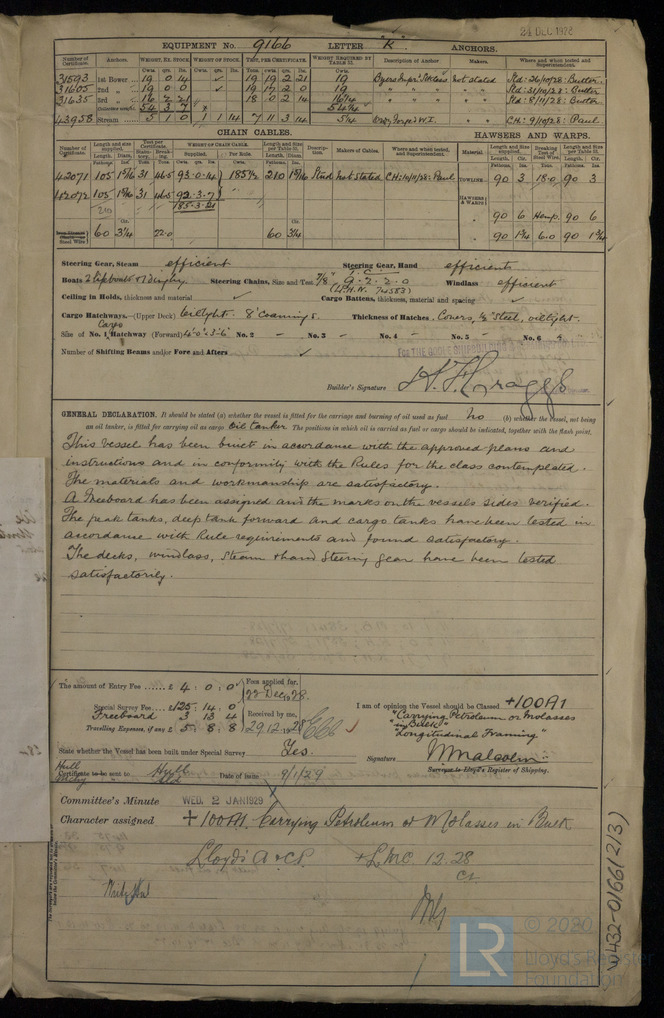 24 DEC 1928
EQUIPMENT No. 9166 LETTER "K" ANCHORS.
Number of Certificate. Anchors. WEIGHT, EX. STOCK WEIGHT OF STOCK. TEST, PER CERTIFICATE. WEIGHT REQUIRED BY TABLE 31. Description of Anchor Makers. Where and when tested and Superintendent.
Cwts. qrs. lbs. Cwts. qrs. lbs. Tons. cwts. qrs. lbs. Cwts.
31593 1st Bower 19 0 14 ✓ 19 19 2 21 19 Byers Impr. Stkless not stated Sld: 26/10/28: Butter
31605 2nd " 19 0 0 ✓ 19 17 2 0 19 " " " " " Sld: 31/10/28: Butter
31635 3rd " 16 2 21 18 0 2 14 16 1/4 " " " " " Sld: 8/11/28: Butter
Collective weight 54 3 7 54 1/4
43958 Stream 5 1 0 1 1 14 7 11 3 14 5 1/4 Ordy Forged W.I. C.H: 9/10/28: Paul
CHAIN CABLES. HAWSERS AND WARPS.
Number of Certificate. Length and size supplied. Test per Certificate. WEIGHT OF CHAIN CABLE. Length and size per Table 31. Description. Makers of Cables. Where and when tested, and Superintendent. Material Length and size supplied. Breaking Test of Steel Wire. Length and size per Table 31.
42071 105 1 9/16 31 46.5 93.0.14 185 1/2 210 1 9/16 Stud not stated C.H: 10/11/28: Paul TOWLINE 90 3 18.0 90 3
42072 105 1 9/16 31 46.5 92.3.7
210 185.3.21 HAWSERS & WARPS
" 90 6 Hemp. 90 6
Steel Wire 60 3 1/4 22.0 60 3 1/4 " 90 1 3/4 6.0 90 1 3/4
Steering Gear, Steam efficient Steering Gear, Hand efficient
Boats 2 lifeboats & 1 Dinghy Steering Chains, Size and Test 7/8" 9.2.2.0 Windlass efficient
Ceiling in Holds, thickness and material ✓ Cargo Battens, thickness, material and spacing ✓
Cargo Hatchways.—(Upper Deck) Oiltight. 8" Coamings. Thickness of Hatches. Covers, 1/2" Steel, oiltight.
Size of No. 1 Cargo Hatchway (Forward) 4'-0" x 3'-6" No. 2 No. 3 No. 4 No. 5 No. 6
Number of Shifting Beams and/or Fore and Afters ✓
Builder's Signature H. F. Craggs
GENERAL DECLARATION. It should be stated (a) whether the vessel is fitted for the carriage and burning of oil used as fuel no (b) whether the vessel, not being
an oil tanker, is fitted for carrying oil as cargo Oil tanker The positions in which oil is carried as fuel or cargo should be indicated, together with the flash point.
This vessel has been built in accordance with the approved plans and
instructions and in conformity with the Rules for the class contemplated.
The materials and workmanship are satisfactory.
A Freeboard has been assigned and the marks on the vessels sides verified.
The peak tanks, deep tank forward and cargo tanks have been tested in
accordance with Rule requirements and found satisfactory.
The decks, windlass, Steam & hand Steering gear have been tested
satisfactorily.
The amount of Entry Fee ...... £ 4 : 0 : 0 Fees applied for,
22 Dec 1928.
Special Survey Fee... £ 125 : 14 : 0
Freeboard 3 13 4 Received by me,
Travelling Expenses, if any £ 5 : 8 : 8 29.12.1928
I am of opinion the Vessel should be Classed +100A1
"Carrying Petroleum or Molasses
in Bulk"
"Longitudinal Framing"
State whether the Vessel has been built under Special Survey Yes.
Signature W Malcolm
Surveyor to Lloyd's Register of Shipping.
Hull
Certificate to be sent to Hull Date of issue 9/1/29
Committee's Minute WED. 2 JAN 1929
Character assigned +100A1. Carrying Petroleum or Molasses in Bulk
Lloyd's A & CP. + LMC. 12.28
W432-0166(2/3)
© 2020
LR
Lloyd's Register
Foundation